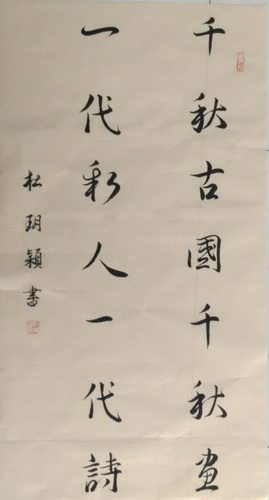 千秋古國千秋畫
一代彩人一代詩
杜玥穎書